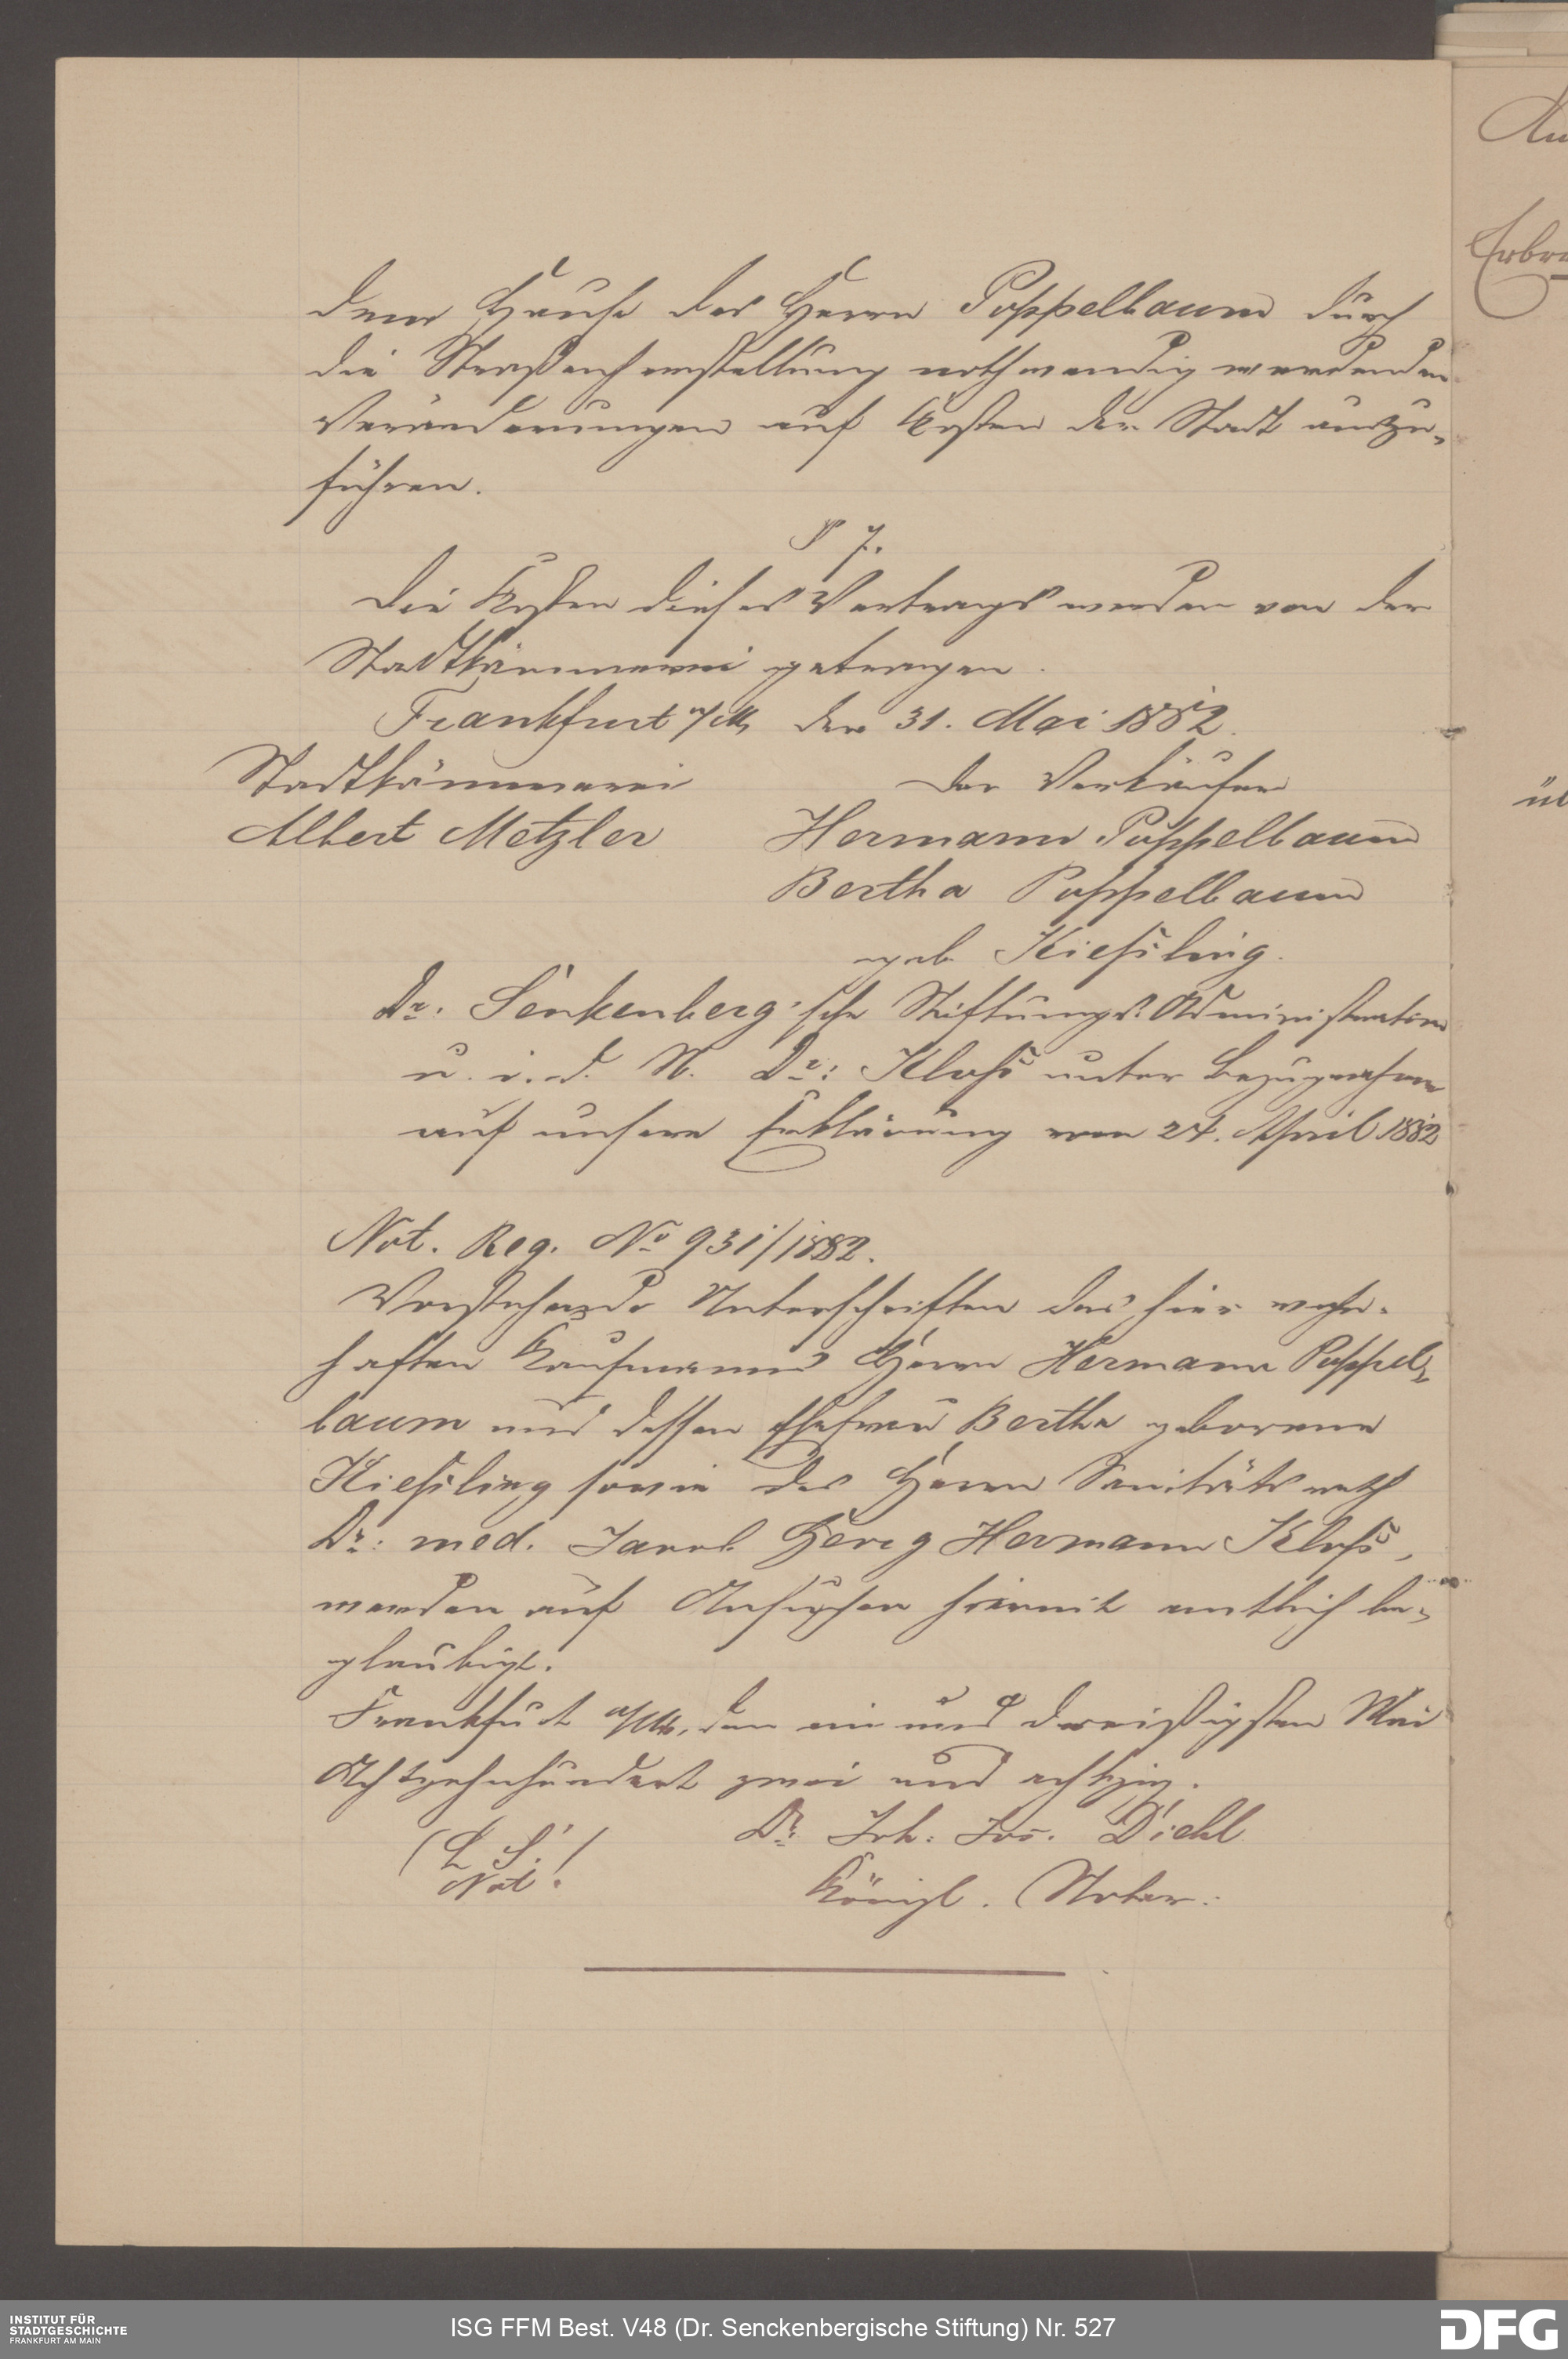 dem Hause des Herrn Poppelbaum durch
die Straßenherstellung nothwendig werdenden
Veränderungen auf Kosten der Stadt auszu-
führen.
§ 7.
Die Kosten dieses Vertrags werden von der
Stadtkämmerei getragen.
Frankfurt a/M, den 31. Mai 1882.
Stadtkämmerei
Der Verkäufer
Albert Metzler
Hermann Poppelbaum
Bertha Poppelbaum
geb Kießling.
Dr. Senkenberg'sche Stiftungs-Administration
u. i. d. N. Dr: Kloß unter Bezugnahme
auf unsere Erklärung vom 24. April 1882
Not. Reg. No 931/1882.
Vorstehende Unterschriften des hier wohn-
haften Kaufmanns Herrn Hermann Poppel-
baum und dessen Ehefrau Bertha geborene
Kießling sowie des Herrn Sanitätsrath
Dr: med. Jacob Georg Hermann Kloß,
werden auf Ansuchen hiermit amtlich be-
glaubigt.
Frankfurt a/M, den ein und dreißigsten Mai
Achtzehnhundert zwei und achtzig.
Dr: Joh: Jos. Diehl
(L. S.)
Not.
Königl. Notar.
Erbre
INSTITUT FÜR
STADTGESCHICHTE
FRANKFURT AM MAIN
ISG FFM Best. V48 (Dr. Senckenbergische Stiftung) Nr. 527
DFG